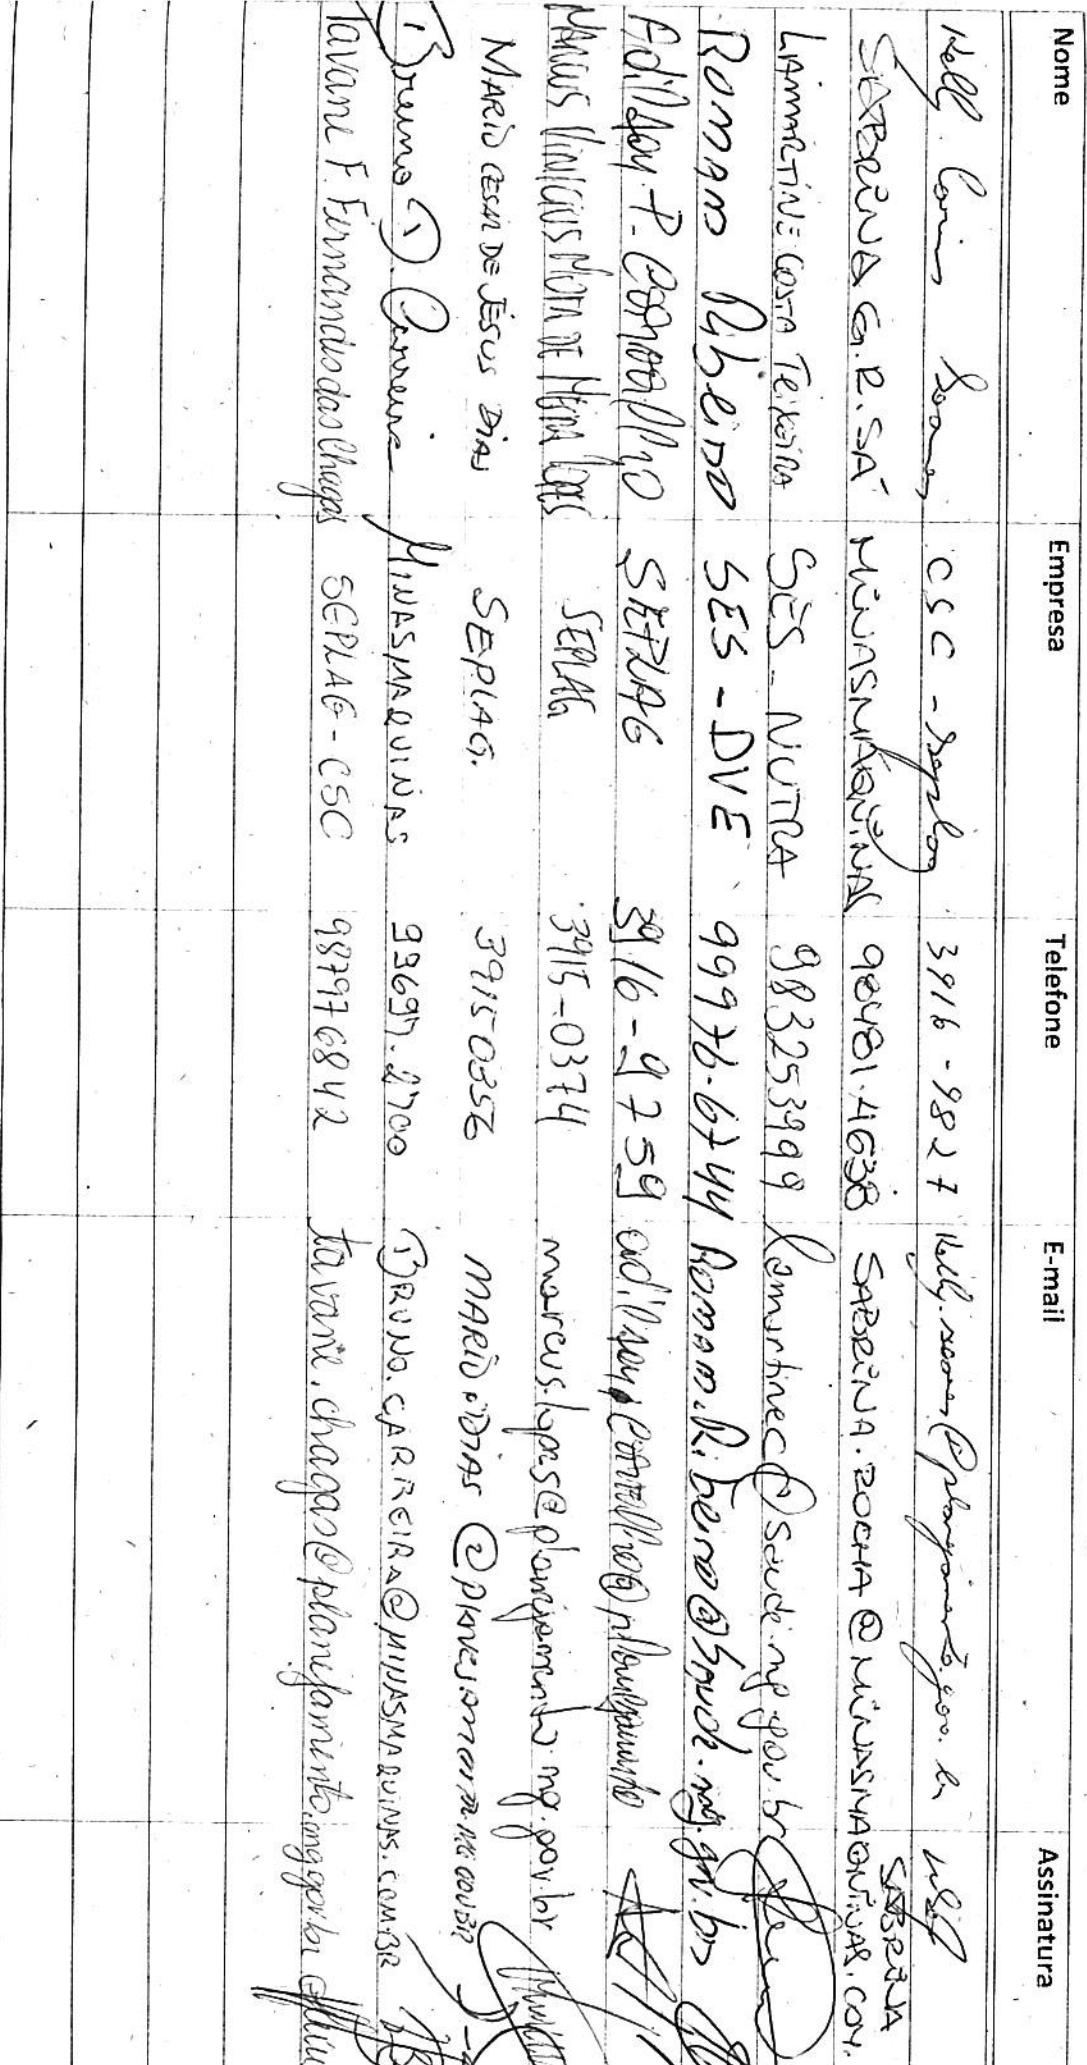 Nome Empresa Telefone E-mail Assinatura
Kelly Soares CSC - Seplag 3916-9827 Kelly.soares@planejamento.gov.br
SABRINA G.R.SÁ MINASMAQUINAS 98481.4638 SABRINA.ROCHA@MINASMAQUINAS.COM. SABRINA
LAMARTINE COSTA TEIXEIRA SES - NUTRA 983253999 lamartinec@saude.mg.gov.br
Romano Ribeiro SES-DVE 99976.6744 Romano.Ribeiro@saude.mg.gov.br
Adilson P. Carvalho SEPLAG 3916-9759 adilson.carvalho@planejamento
MARCUS VINICIUS MOTA DE MEIRA LOPES SEPLAG 3915-0374 marcus.lopes@planejamento.mg.gov.br
MARIO CESAR DE JESUS DIAS SEPLAG. 39150356 MARIO.DIAS@planejamento.MG.GOV.BR
Bruno D. Carreira MINASMAQUINAS 99697.2700 BRUNO.CARREIRA@MINASMAQUINAS.COM.BR
Tavane F. Fernandes das Chagas SEPLAG-CSC 987976842 tavane.chagas@planejamento.mg.gov.br